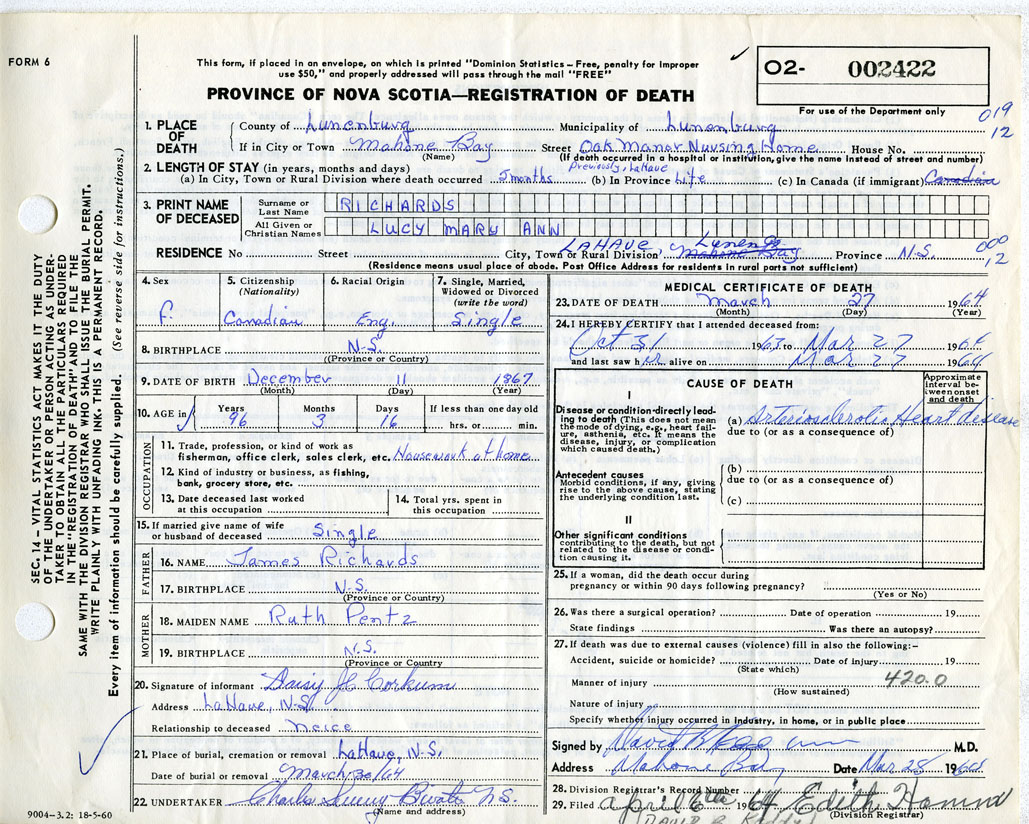 FORM 6
This form, if placed in an envelope, on which is printed "Dominion Statistics – Free, penalty for improper
use $50," and properly addressed will pass through the mail "FREE"
O2- 002422
PROVINCE OF NOVA SCOTIA—REGISTRATION OF DEATH
For use of the Department only
019
12
1. PLACE OF DEATH
County of Lunenburg Municipality of Lunenburg
If in City or Town Mahone Bay Street Oak Manor Nursing Home House No.
(Name) (If death occurred in a hospital or institution, give the name instead of street and number)
2. LENGTH OF STAY (in years, months and days) Previously, LaHave
(a) In City, Town or Rural Division where death occurred 5 months (b) In Province Life (c) In Canada (if immigrant) Canadian
3. PRINT NAME OF DECEASED
Surname or Last Name RICHARDS
All Given or Christian Names LUCY MARY ANN
RESIDENCE No. Street City, Town or Rural Division LAHAVE, Lunen Co. Mahone Bay Province N.S. 000 12
(Residence means usual place of abode. Post Office Address for residents in rural parts not sufficient)
SEC. 14 – VITAL STATISTICS ACT MAKES IT THE DUTY
OF THE UNDERTAKER OR PERSON ACTING AS UNDER-
TAKER TO OBTAIN ALL THE PARTICULARS REQUIRED
IN THE "REGISTRATION OF DEATH" AND TO FILE THE
SAME WITH THE DIVISION REGISTRAR WHO SHALL ISSUE THE BURIAL PERMIT.
WRITE PLAINLY WITH UNFADING INK-THIS IS A PERMANENT RECORD.
Every item of information should be carefully supplied. (See reverse side for instructions.)
4. Sex F.
5. Citizenship (Nationality) Canadian
6. Racial Origin Eng.
7. Single, Married, Widowed or Divorced (write the word) Single
8. BIRTHPLACE N.S.
((Province or Country)
9. DATE OF BIRTH December 11 1867
(Month) (Day) (Year)
10. AGE in Years 96 Months 3 Days 16 If less than one day old hrs. or min.
OCCUPATION
11. Trade, profession, or kind of work as
fisherman, office clerk, sales clerk, etc. Housework at home
12. Kind of industry or business, as fishing,
bank, grocery store, etc.
13. Date deceased last worked at this occupation
14. Total yrs. spent in this occupation
15. If married give name of wife
or husband of deceased Single
FATHER
16. NAME James Richards
17. BIRTHPLACE N.S.
(Province or Country)
MOTHER
18. MAIDEN NAME Ruth Pentz
19. BIRTHPLACE N.S.
(Province or Country
20. Signature of informant Daisy Corkum
Address LaHave, N.S.
Relationship to deceased neice
21. Place of burial, cremation or removal LaHave, N.S.
Date of burial or removal March 30/64
22. UNDERTAKER N.S.
(Name and address)
9004–3.2: 18-5-60
MEDICAL CERTIFICATE OF DEATH
23. DATE OF DEATH March 27 1964
(Month) (Day) (Year)
24. I HEREBY CERTIFY that I attended deceased from:
Oct 31 196 to Mar 27 1964
and last saw her alive on Mar 27 1964
CAUSE OF DEATH
Approximate interval be-tween onset and death
I
Disease or condition-directly lead-
ing to death (This does not mean
the mode of dying, e.g., heart fail-
ure, asthenia, etc. It means the
disease, injury, or complication
which caused death.)
(a) Arteriosclerotic Heart disease
due to (or as a consequence of)
Antecedent causes
Morbid conditions, if any, giving
rise to the above cause, stating
the underlying condition last.
(b)
due to (or as a consequence of)
(c)
II
Other significant conditions
contributing to the death, but not
related to the disease or condi-
tion causing it.
25. If a woman, did the death occur during
pregnancy or within 90 days following pregnancy?
(Yes or No)
26. Was there a surgical operation? Date of operation 19
State findings Was there an autopsy?
27. If death was due to external causes (violence) fill in also the following:-
Accident, suicide or homicide? Date of injury 19
(State which)
Manner of injury 420.0
(How sustained)
Nature of injury
Specify whether injury occurred in industry, in home, or in public place
Signed by David M.D.
Address Mahone Bay Date Mar 28 1964
28. Division Registrar's Record Number
29. Filed April 6th 1964 Edith
(Division Registrar)